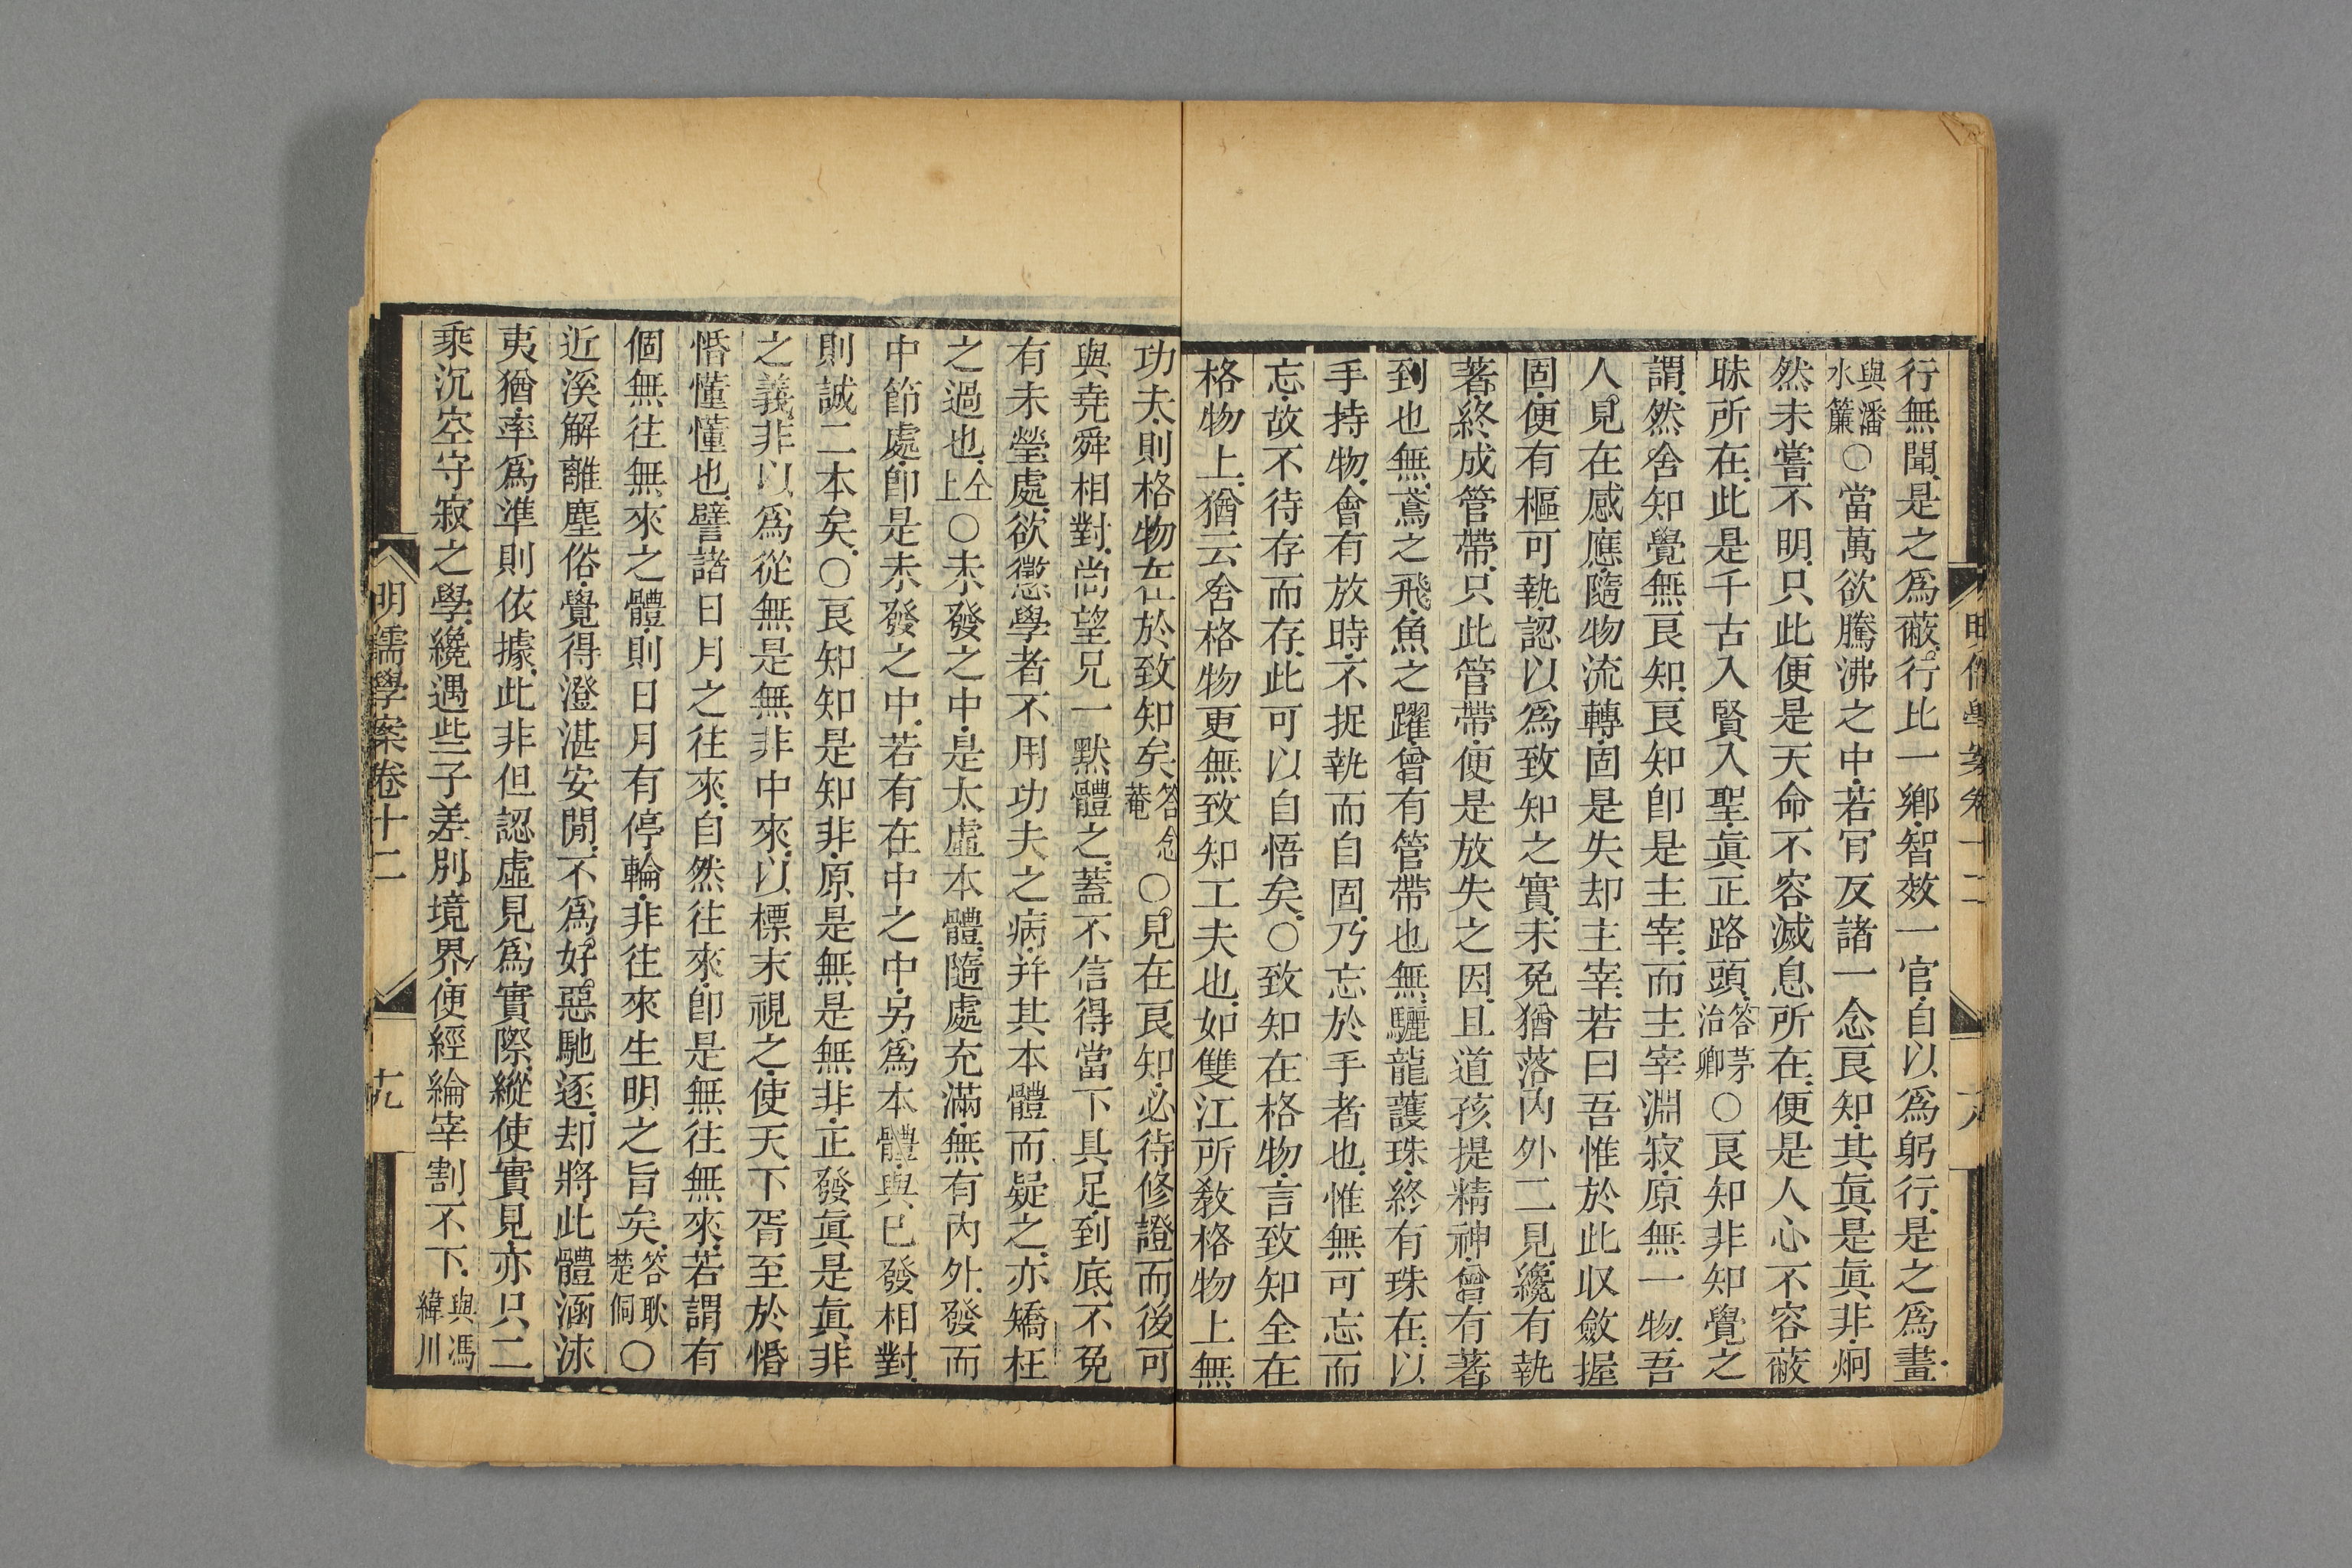 行無聞是之爲蔽行比一鄉智效一官自以爲躬行是之爲畫
與潘水簾○當萬欲騰沸之中若肯反諸一念良知其眞是眞非炯
然未嘗不明只此便是天命不容滅息所在便是人心不容蔽
昧所在此是千古入賢入聖眞正路頭答茅治卿○良知非知覺之
謂然舍知覺無良知良知卽是主宰而主宰淵寂原無一物吾
人見在感應隨物流轉固是失却主宰若曰吾惟於此収斂握
固便有樞可執認以爲致知之實未免猶落內外二見纔有執
著終成管帶只此管帶便是放失之因且道孩提精神曾有著
到也無鳶之飛魚之躍曾有管帶也無驪龍護珠終有珠在以
手持物會有放時不捉執而自固乃忘於手者也惟無可忘而
忘故不待存而存此可以自悟矣○致知在格物言致知全在
格物上猶云舍格物更無致知工夫也如雙江所敎格物上無
功夫則格物在於致知矣答念菴○見在良知必待修證而後可
與堯舜相對尚望兄一默體之蓋不信得當下具足到底不免
有未瑩處欲懲學者不用功夫之病并其本體而疑之亦矯枉
之過也仝上○未發之中是太虛本體隨處充滿無有內外發而
中節處卽是未發之中若有在中之中另爲本體與已發相對
則誠二本矣○良知知是知非原是無是無非正發眞是眞非
之義非以爲從無是無非中來以標末視之使天下胥至於惛
惛懂懂也譬諸日月之往來自然往來卽是無往無來若謂有
個無往無來之體則日月有停輪非往來生明之旨矣答耿楚侗○
近溪解離塵俗覺得澄湛安閒不爲好惡馳逐却將此體涵泳
夷猶率爲準則依據此非但認虛見爲實際縱使實見亦只二
乘沉空守寂之學纔遇些子差別境界便經綸宰割不下與馮緯川
明儒學案卷十二
十九